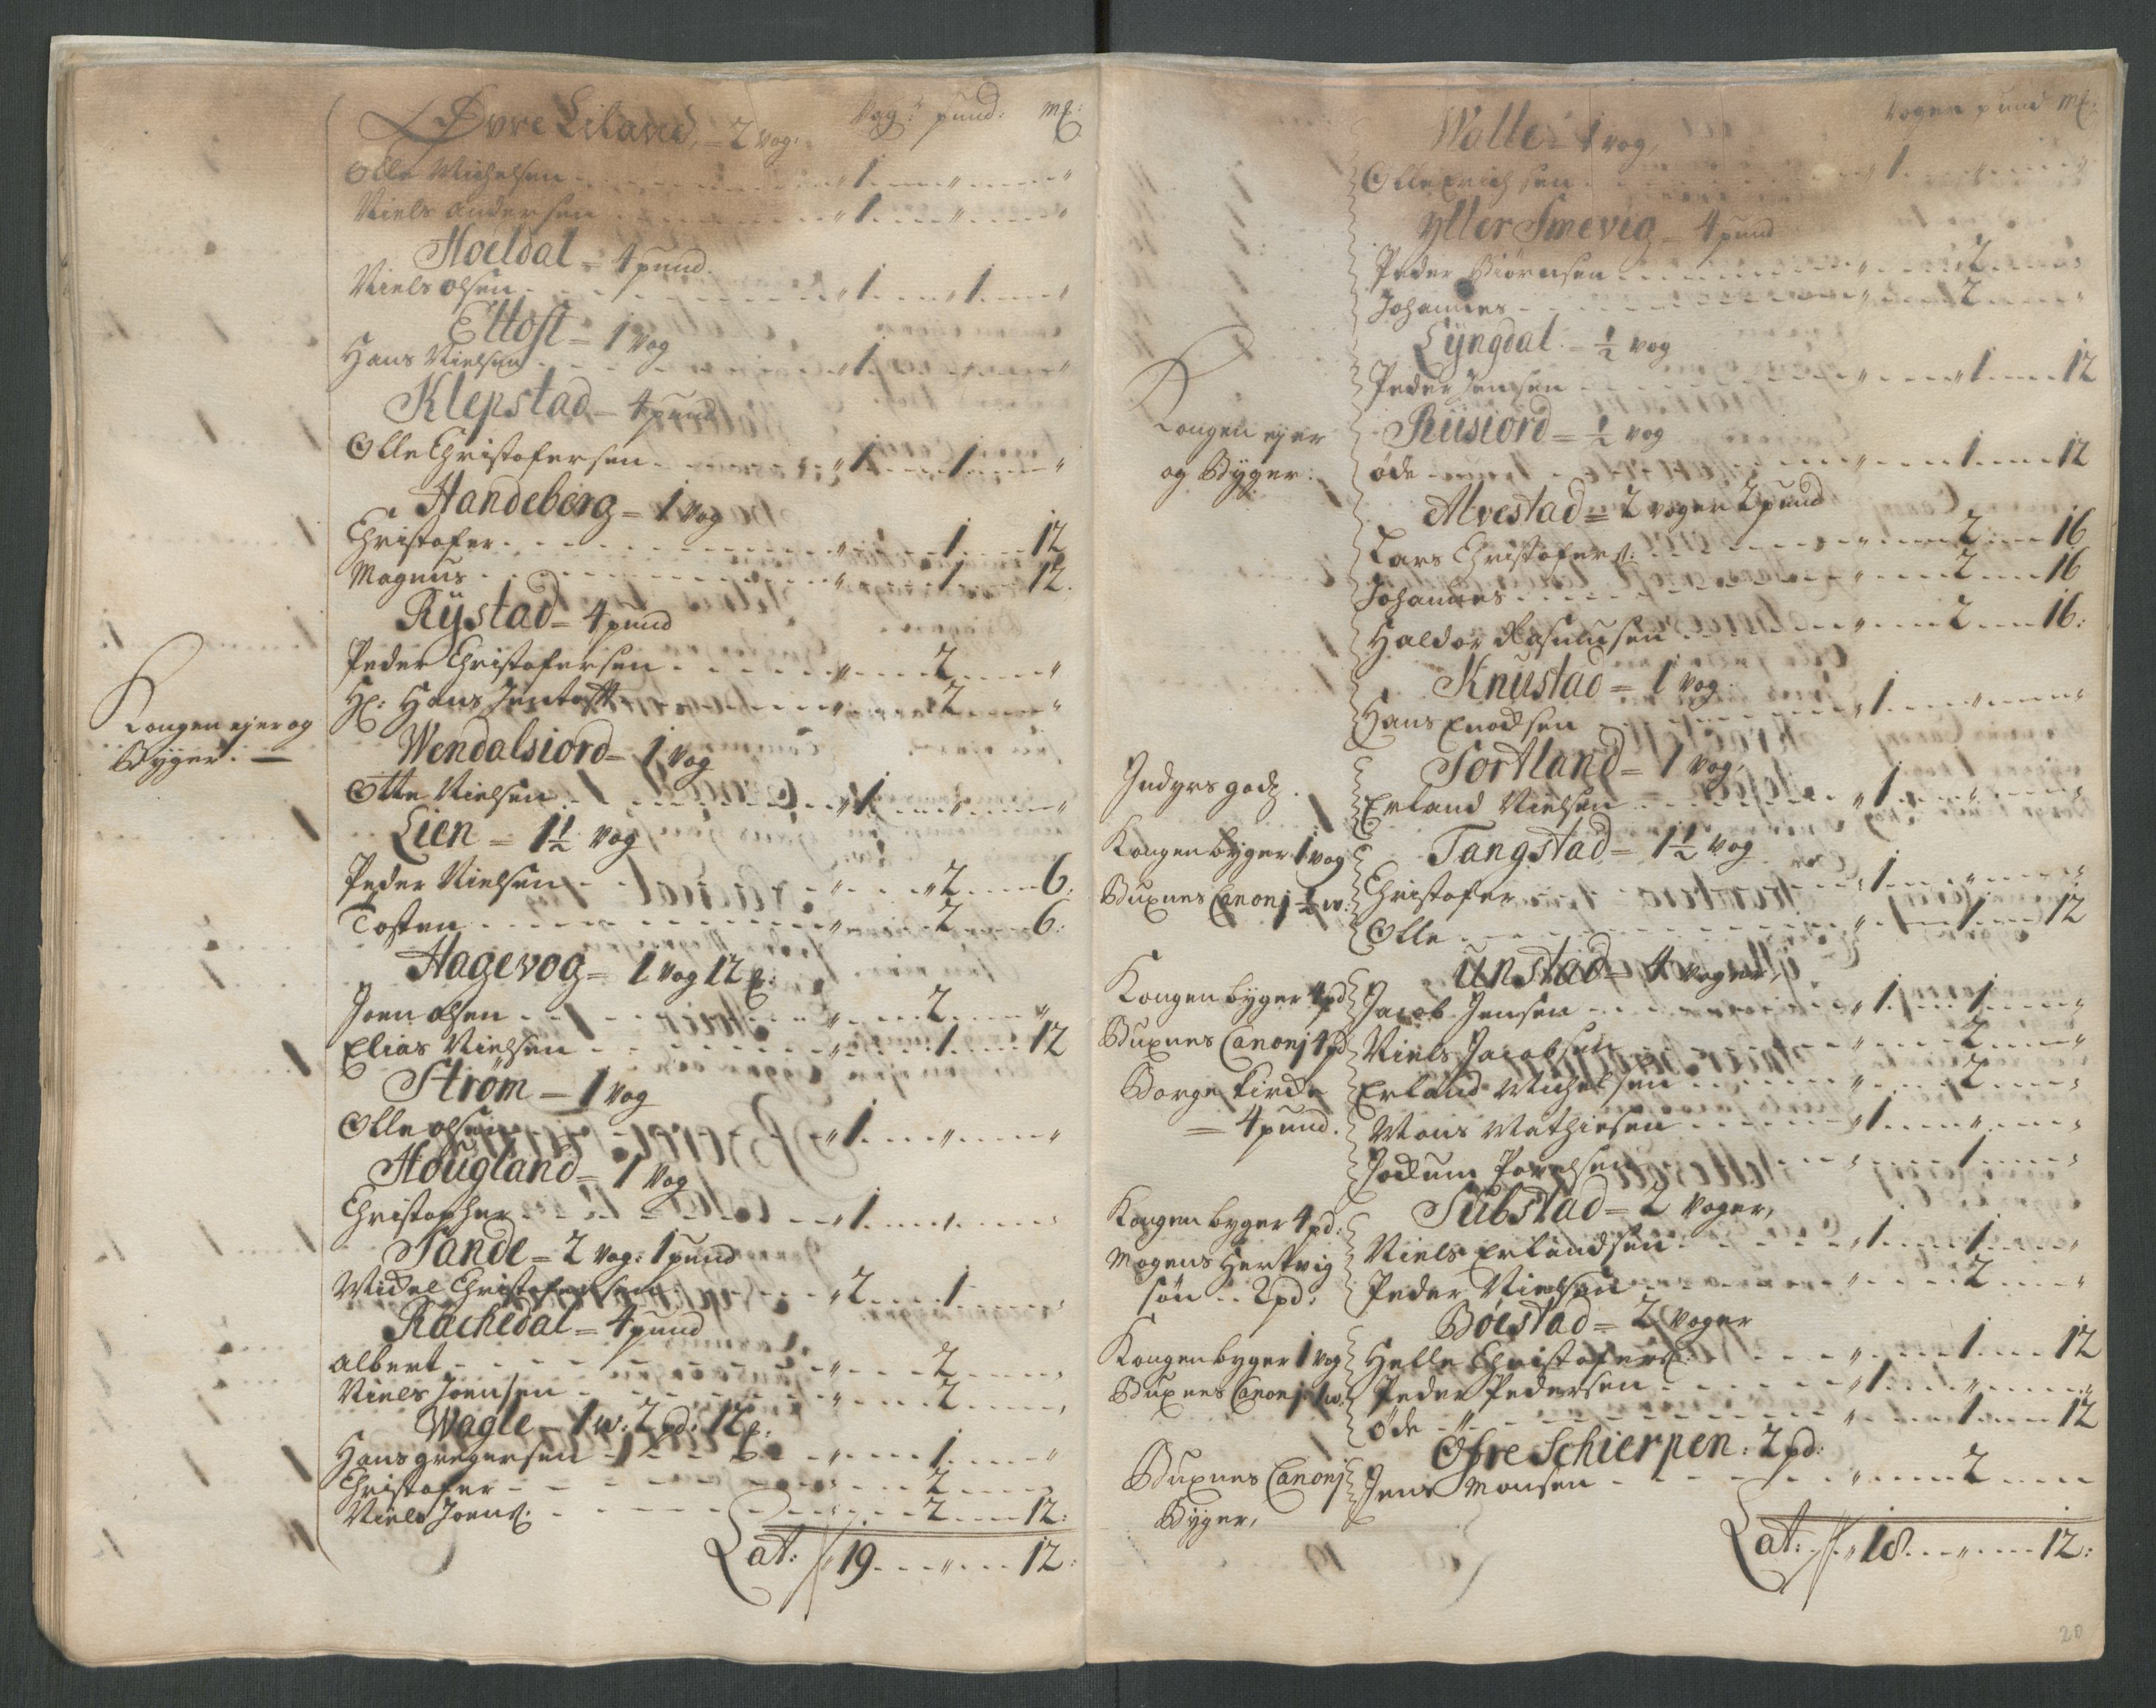 Øvre Liland = 2 vog: Vog: pund: m:
Olle Michelsen - - - " 1 - - " - - "
Niels Andersen - - - " 1 - - " - - "
Hoeldal = 4 pund.
Niels Olsen - - - " 1 - - " 1 - - "
Eltoft = 1 vog
Hans Nielsen - - - " 1 - - " - - "
Klepstad = 4 pund
Olle Christofersen - - - " 1 - - 1 - - "
Handeberg = 1 vog
Christofer - - - " - - 1 - - 12
Magnus - - - " - - 1 - - 12.
Rÿstad = 4 pund
Peder Christofersen - - - " - - 2 - - "
Hr: Hans Jentoft - - - " - - 2 - - "
Kongen ejer og
Byger. —
Wendalsiord = 1 vog
Otte Nielsen - - - " 1 - - " - - "
Lien = 1½ vog
Peder Nielsen - - - " - - " 2 - - 6:
Tosten - - - " - - 2 - - 6:
Hagevog = 1 vog 12 :
Joen Olsen - - - " - - 2 - - "
Elias Nielsen - - - " - - 1 - - 12
Ström = 1 vog
Olle Olsen - - - " 1 - - " - - "
Hougland = 1 vog
Christopher - - - " 1 - - " - - "
Sande = 2 vog: 1 pund
Michel Christofersen - - - " 2 - - 1 - - "
Rachedal = 4 pund
Albert - - - " - - 2 - - "
Niels Joensen - - - " - - 2 - - "
Wagle = 1 w: 2 pd: 12 :
Hans gregersen - - - " - - 1 - - "
Christofer - - - " - - 2 - - "
Niels Joens: - - - " - - 2 - - 12:
Lat: " 19 - - " - - 12:
Wolle = 1 vog Voger pund m:
Olle Erichsen - - - " 1 - - " - - "
Ytter Smevig = 4 pund
Peder Biörnsen - - - " - - 2 - - "
Johannes - - - " - - 2 - - "
Lÿngdal = ½ vog
Peder Jensen - - - " - - " 1 - - 12
Kongen ejer
og Byger:
Riisiord = ½ vog
øde - - - " - - 1 - - 12
Alvestad = 2 voger 2 pund
Lars Christofers: - - - " - - 2 - - 16
Johannes - - - " - - 2 - - 16
Haldor Rasmusen - - - " - - 2 - - 16:
Knustad = 1 vog
Hans Enochsen - - - " 1 - - " - - "
Jndyrs godz.
Sortland = 1 vog,
Erland Nielsen - - - " 1 - - " - - "
Kongen byger 1 vog
Buxnes Canonj ½ w:
Tangstad = 1½ vog
Christofer - - - " 1 - - " - - "
Olle - - - " - - 1 - - 12
Kongen byger 4 pd
Buxnes Canonj 4 pd
Borge Kircke
= 4 pund.
Unstad = 4 voger,
Jacob Jensen - - - " 1 - - 1 - - "
Niels Jacobsen - - - " - - 2 - - "
Erland Michelsen - - - " - - 2 - - "
Mons Mathiesen - - - " 1 - - " - - "
Jockum Povelsen - - - " - - 1 - - "
Kongen byger 4 pd:
Mogens Hertvig
søn - - 2 pd:
Substad = 2 voger,
Niels Erlandsen - - - " 1 - - 1 - - "
Peder Nielsen - - - " - - 2 - - "
Kongen byger 1 vog
Buxnes Canonj 1 w:
Böestad = 2 voger
Helle Christofers: - - - " - - 1 - - 12
Peder Pedersen - - - " 1 - - " - - "
øde - " - - - " - - 1 - - 12
Buxnes Canonj
Byger,
Ofre Schierpen: 2 pd:
Jens Monsen - - - " - - 2 - - -
Lat: " 18 - - " - - 12:
20